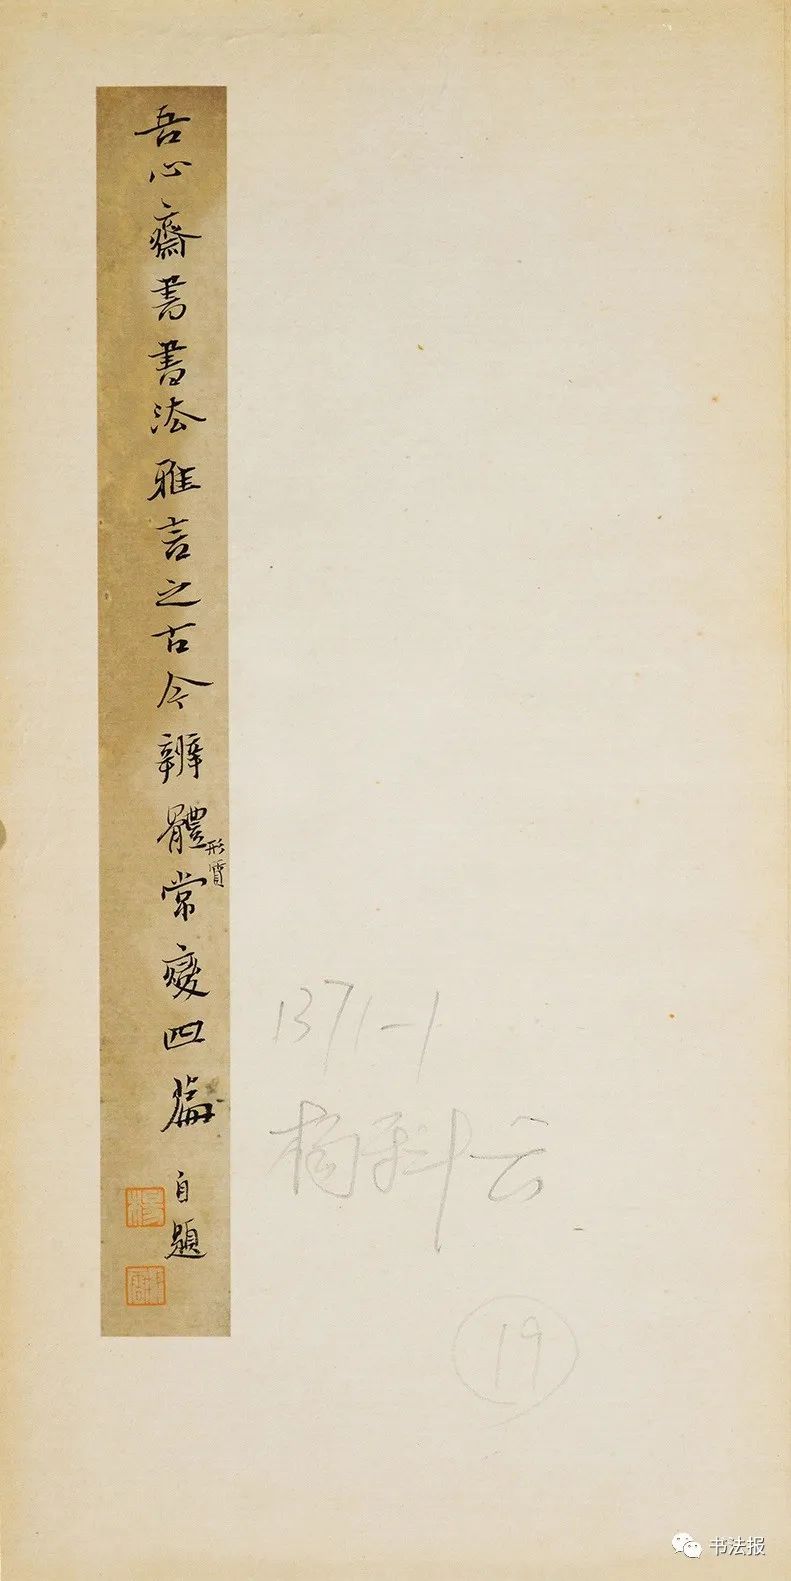 吾心齋書書法雅言之古今辨體形質常變四篇
自題
楊
1371-1
杨科云
19
书法报